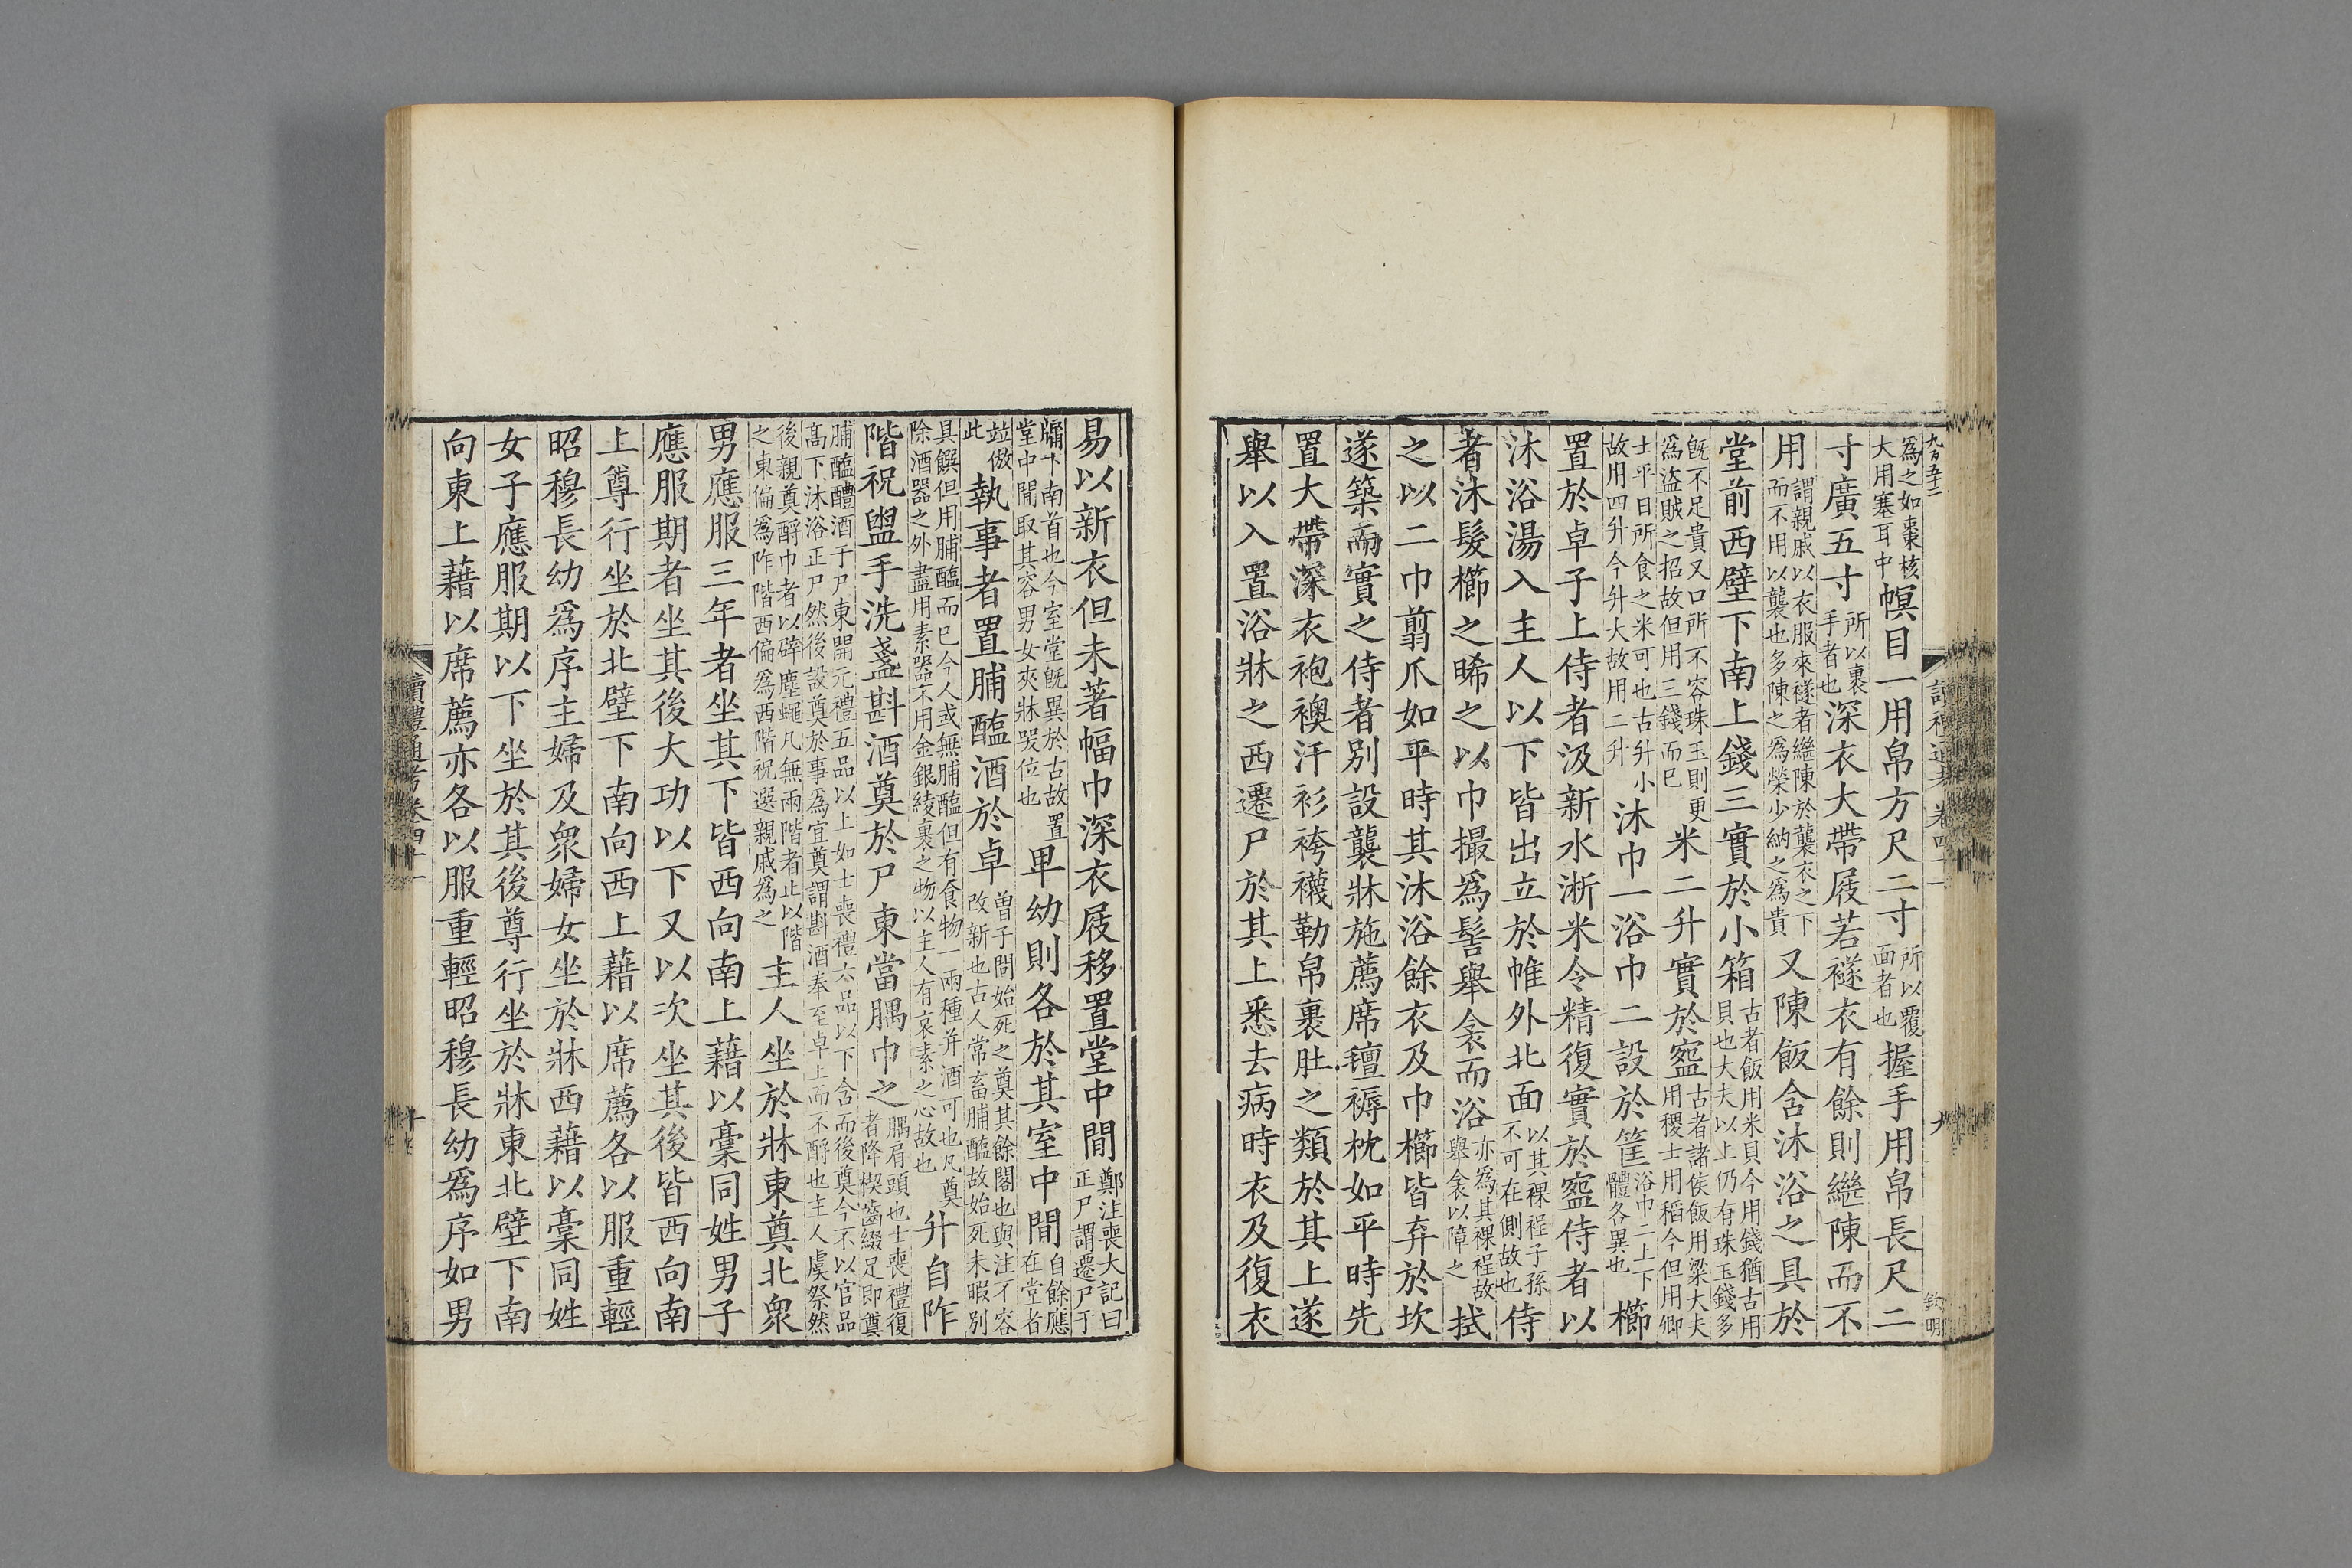 九百五十二
爲之如棗核大用塞耳中幎目一用帛方尺二寸所以覆面者也握手用帛長尺二
寸廣五寸所以裹手者也深衣大帶屐若襚衣有餘則繼陳而不
用謂親戚以衣服來襚者繼陳於襲衣之下而不用以襲也多陳之爲榮少納之爲貴又陳飯含沐浴之具於
堂前西壁下南上錢三實於小箱古者飯用米貝今用錢猶古用貝也大夫以上仍有珠玉錢多
旣不足貴又口所不容珠玉則更爲盜賊之招故但用三錢而已米二升實於盌古者諸侯飯用粱大夫用稷士用稻今但用卿
士平日所食之米可也古升小故用四升今升大故用二升沐巾一浴巾二設於筐浴巾二上下體各異也櫛
置於卓子上侍者汲新水淅米令精復實於盌侍者以
沐浴湯入主人以下皆出立於帷外北面以其裸裎子孫不可在側故也侍
者沐髮櫛之晞之以巾撮爲髻舉衾而浴亦爲其裸裎故舉衾以障之拭
之以二巾翦爪如平時其沐浴餘衣及巾櫛皆弃於坎
遂築而實之侍者別設襲牀施薦席氊褥枕如平時先
置大帶深衣袍襖汗衫袴襪勒帛裹肚之類於其上遂
舉以入置浴牀之西遷尸於其上悉去病時衣及復衣
易以新衣但未著幅巾深衣屐移置堂中間鄭注喪大記曰正尸謂遷尸于
牖下南首也今室堂旣異於古故置堂中間取其容男女夾牀哭位也卑幼則各於其室中間自餘應在堂者
竝倣此執事者置脯醢酒於卓曾子問始死之奠其餘閣也與注不容改新也古人常畜脯醢故始死未暇別
具饌但用脯醢而已今人或無脯醢但有食物一兩種并酒可也凡奠除酒器之外盡用素器不用金銀綾裹之物以主人有哀素之心故也升自阼
階祝盥手洗盞斟酒奠於尸東當腢巾之腢肩頭也士喪禮復者降楔齒綴足即奠
脯醢醴酒于尸東開元禮五品以上如士喪禮六品以下含而後奠今不以官品高下沐浴正尸然後設奠於事爲宜奠謂斟酒奉至卓上而不酹也主人虞祭然
後親奠酹巾者以辟塵蠅凡無兩階者止以階之東偏爲阼階西偏爲西階祝選親戚爲之主人坐於牀東奠北衆
男應服三年者坐其下皆西向南上藉以藁同姓男子
應服期者坐其後大功以下又以次坐其後皆西向南
上尊行坐於北壁下南向西上藉以席薦各以服重輕
昭穆長幼爲序主婦及衆婦女坐於牀西藉以藁同姓
女子應服期以下坐於其後尊行坐於牀東北壁下南
向東上藉以席薦亦各以服重輕昭穆長幼爲序如男
讀禮通考卷四十一
十